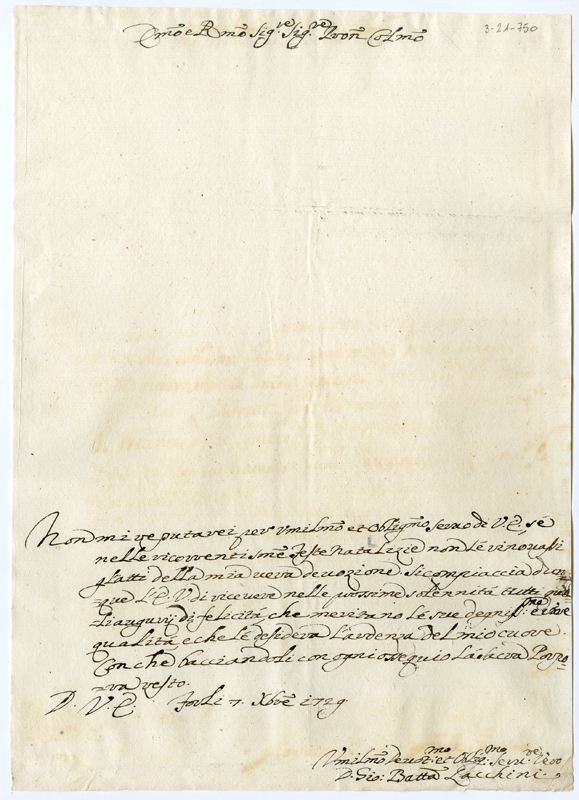 Emo e Rmo Sig.re Sig.re Pron Colmo
3-21-750
Non mi reputarei per Vmilmo et Obligmo servo de V.E. sé
nelle ricorrenti sme feste Natalizie non lé rinovassi
gl'atti della mia vera devozione. Si compiaccia dun=
=que L'E.V. di ricevere nelle prossime solennità tutti quei
gl'augurij di felicità, che meritano lé sue degnis.me e rare
qualità, e che lé desidera l'ardenza del mio cuore.
Con che bacciandoli con ogni ossequio La Porpo=
ra resto.
D. V. E. Forlì 7. Xbre 1729
Vmilmo Devot.mo et Oblig.mo Serv.re Vero
D. Gio: Batta Lacchini.